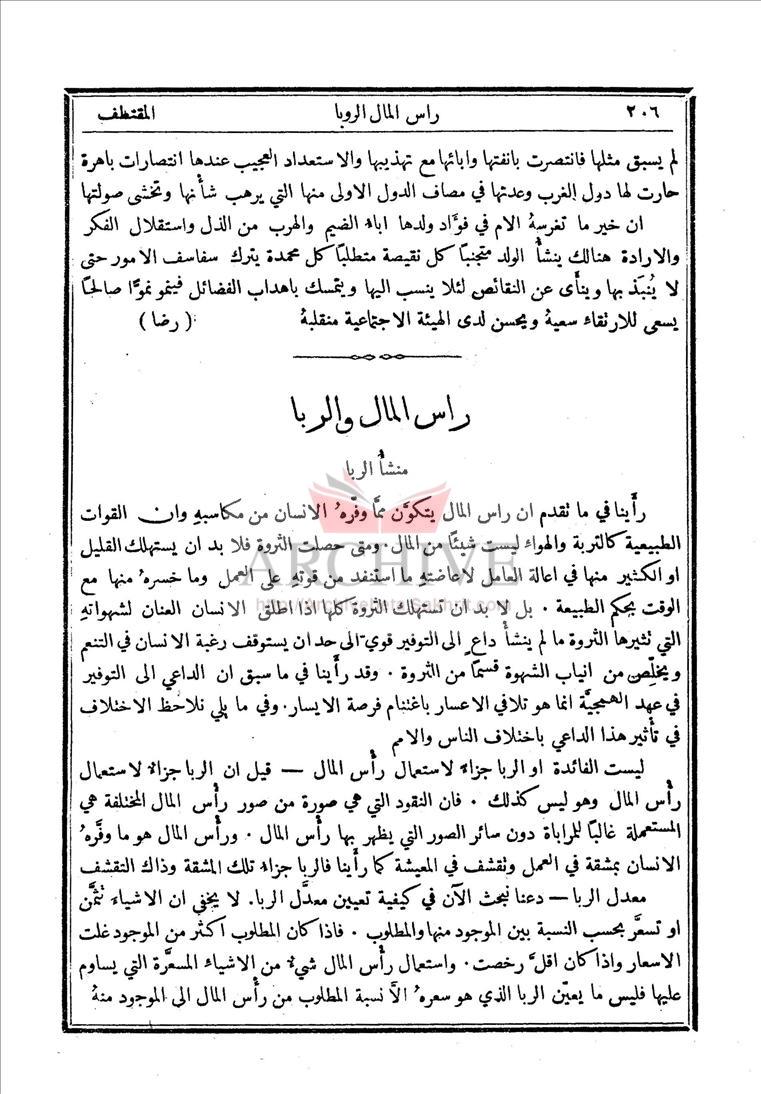 ٢٠٦ راس المال الروبا المقتطف
لم يسبق مثلها فانتصرت بانفتها وابائها مع تهذيبها والاستعداد العجيب عندها انتصارات باهرة
حارت لها دول الغرب وعدتها في مصاف الدول الاولى منها التي يرهب شأنها وتخشى صولتها
ان خير ما تغرسهُ الام في فوَّاد ولدها اباءَ الضيم والهرب من الذل واستقلال الفكر
والارادة هنالك ينشأُ الولد متجنباً كل نقيصة متطلباً كل محمدة يترك سفاسف الامور حتى
لا يُنبَذ بها وينأى عن النقائص لئلا ينسب اليها ويتمسك باهداب الفضائل فينمو نموًّا صالحاً
يسعى للارتقاء سعيهُ ويحسن لدى الهيئة الاجتماعية منقلبهُ (رضا)
راس المال والربا
منشأُ الربا
رأَينا في ما تقدم ان راس المال يتكوَّن ممَّا وفّرهُ الانسان من مكاسبهِ وان القوات
الطبيعية كالتربة والهواء ليست شيئًا من المال. ومتى حصلت الثروة فلا بد ان يستهلك القليل
او الكثير منها في اعالة العامل لاعاضتهِ ما استنفد من قوتهِ على العمل وما خسرهُ منها مع
الوقت بحكم الطبيعة . بل لا بد ان تستهلك الثروة كلها اذا اطلق الانسان العنان لشهواتهِ
التي تثيرها الثروة ما لم ينشأْ داعٍ الى التوفير قوي الى حد ان يستوقف رغبة الانسان في التنعم
ويخلِّص من انياب الشهوة قسمًا من الثروة . وقد رأَينا في ما سبق ان الداعي الى التوفير
في عهد الهمجيَّة انما هو تلافي الاعسار باغتنام فرصة الايسار. وفي ما يلي نلاحظ الاختلاف
في تأثير هذا الداعي باختلاف الناس والامم
ليست الفائدة او الربا جزاءً لاستعمال رأس المال — قيل ان الربا جزاءٌ لاستعمال
رأْس المال وهو ليس كذلك . فان النقود التي هي صورة من صور رأْس المال المختلفة هي
المستعملة غالبًا للمراباة دون سائر الصور التي يظهر بها رأْس المال . ورأْس المال هو ما وفَّرهُ
الانسان بمشقة في العمل وتقشف في المعيشة كما رأَينا فالربا جزاءُ تلك المشقة وذاك التقشف
معدل الربا — دعنا نبحث الآن في كيفية تعيين معدَّل الربا. لا يخفى ان الاشياءَ تثمَّن
او تسعَّر بحسب النسبة بين الموجود منها والمطلوب . فاذا كان المطلوب اكثر من الموجود غلت
الاسعار واذا كان اقلَّ رخصت. واستعمال رأْس المال شيءٌ من الاشياء المسعَّرة التي يساوم
عليها فليس ما يعيّن الربا الذي هو سعرهُ الَّا نسبة المطلوب من رأْس المال الى الموجود منهُ
ARCHIVE